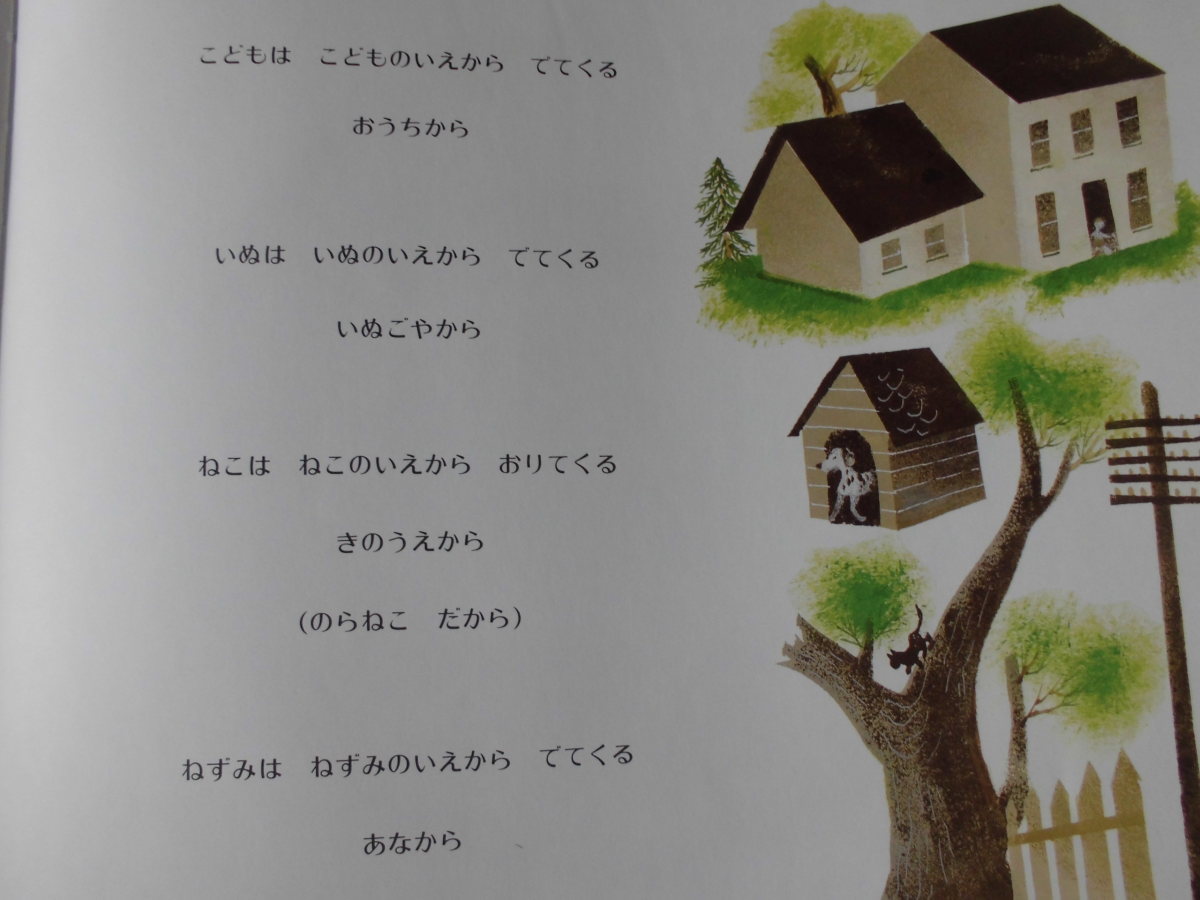 こどもは　こどものいえから　でてくる
おうちから
いぬは　いぬのいえから　でてくる
いぬごやから
ねこは　ねこのいえから　おりてくる
きのうえから
（のらねこ　だから）
ねずみは　ねずみのいえから　でてくる
あなから